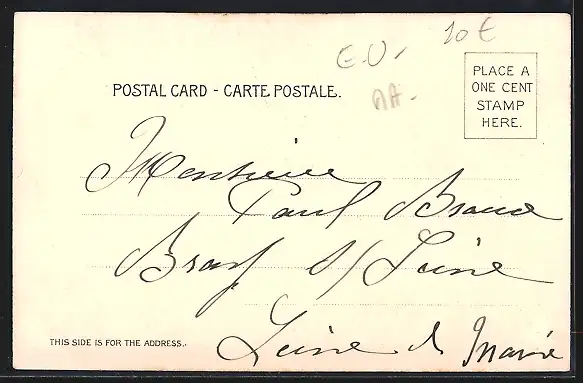 E.U. 10 €
POSTAL CARD - CARTE POSTALE.
PLACE A
ONE CENT
STAMP
HERE.
Monsieur
Paul
Bray s/ Seine
Seine & Marne
THIS SIDE IS FOR THE ADDRESS.